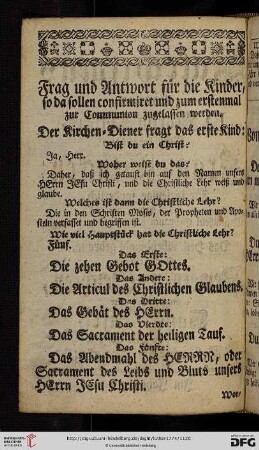 Frag und Antwort für die Kinder,
so da sollen confirmiret und zum erstenmal
zur Communion zugelassen werden.
Der Kirchen-Diener fragt das erste Kind:
Bist du ein Christ?
Ja, Herr.
Woher weist du das?
Daher, daß ich getauft bin auf den Namen unsers
HErrn JEsu Christi, und die Christliche Lehr weiß und
glaube.
Welches ist dann die Christliche Lehr?
Die in den Schriften Mosis, der Propheten und Apo-
steln verfasset und begriffen ist.
Wie viel Hauptstück hat die Christliche Lehr?
Fünf.
Das Erste:
Die zehen Gebot GOttes.
Das Andere:
Die Articul des Christlichen Glaubens.
Das Dritte:
Das Gebät des HErrn.
Das Vierdte:
Das Sacrament der heiligen Tauf.
Das Fünfte:
Das Abendmahl des HERRN, oder
Sacrament des Leibs und Bluts unsers
HErrn JEsu Christi.
Wor-
© Universitätsbibliothek Heidelberg
gefördert durch die
DFG